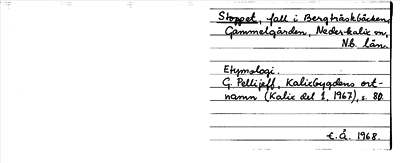 Stoppet, fall i Bergträskbäcken,
Gammelgården, Nederkalix sn,
Nb. län.
Etymologi.
G. Pellijeff, Kalixbygdens ort-
namn (Kalix del 1, 1967), s. 80.
E.Å. 1968.